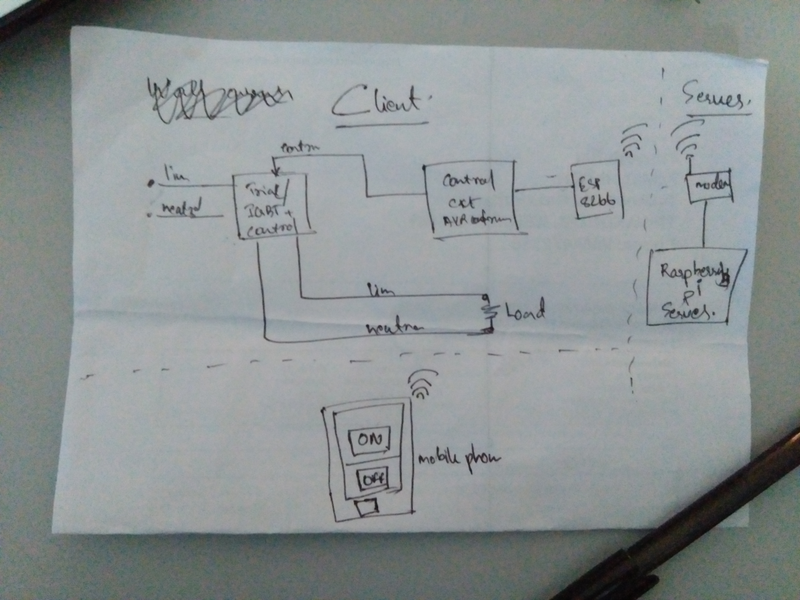 Client.
Server.
line
neutral
control
Triac/
IGBT +
control
Control
ckt
AVR
ESP
8266
modem
Raspberry
Pi
Server.
line
neutral
Load
ON
OFF
mobile phone